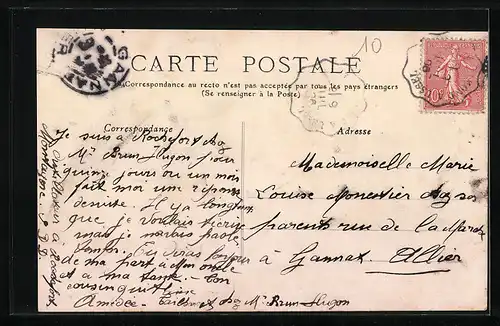 10
GANNAT
CARTE POSTALE
Correspondance au recto n'est pas acceptée par tous les pays étrangers
(Se renseigner à la Poste)
Correspondance
Adresse
Je suis a Rochefort chez
Mr Brun Hugon pour
quinze jours ou un mois
fait moi une réponse
de suite. Il y a longtemps
que je voulais t'ecrire
mais je n'avais pas le
temps. Tu diras bonjour
de ma part a Mon oncle
et a ma tante. Ton
cousin qui t'aime
Amédée
chez Mr Brun Hugon
a Rochefort
Montagne P. D.
Mademoiselle Marie
Louise Monestier chez ses
parents rue de la
à Gannat
Allier
10c